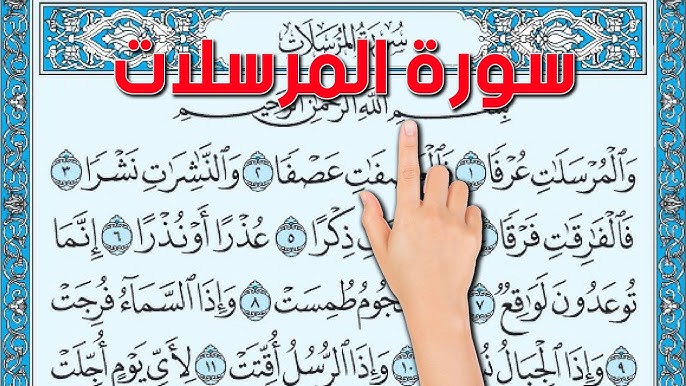 سُورَةُ المُرْسَلَات
سورة المرسلات
بِسْمِ اللَّهِ الرَّحْمَٰنِ الرَّحِيمِ
وَالْمُرْسَلَٰتِ عُرْفًا ١ عَصْفًا ٢ وَالنَّٰشِرَٰتِ نَشْرًا ٣
فَالْفَٰرِقَٰتِ فَرْقًا ذِكْرًا ٥ عُذْرًا أَوْ نُذْرًا ٦ إِنَّمَا
تُوعَدُونَ لَوَٰقِعٌ ٧ طُمِسَتْ ٨ وَإِذَا السَّمَآءُ فُرِجَتْ
٩ وَإِذَا الْجِبَالُ ١٠ وَإِذَا الرُّسُلُ أُقِّتَتْ ١١ لِأَيِّ يَوْمٍ أُجِّلَتْ